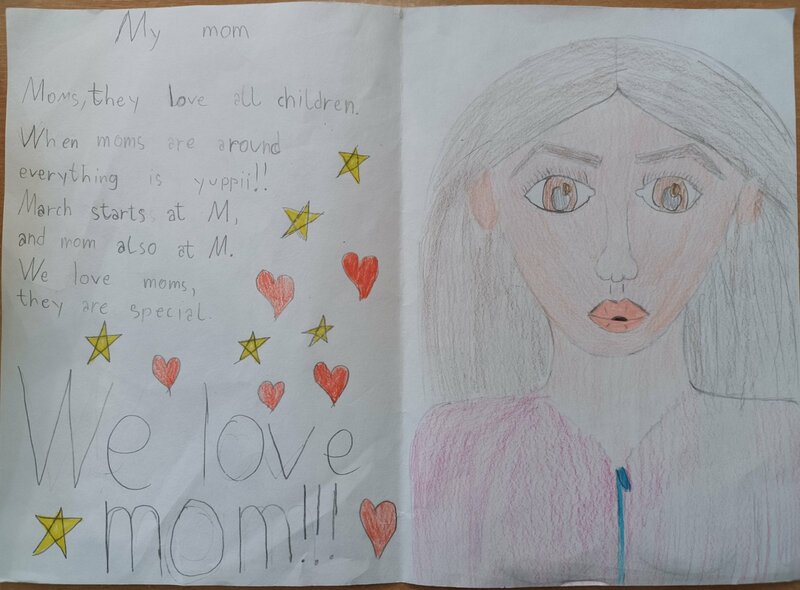 My mom
Moms, they love all children.
When moms are around
everything is yuppii!!
March starts at M,
and mom also at M.
We love moms,
they are special.
We love
mom!!!